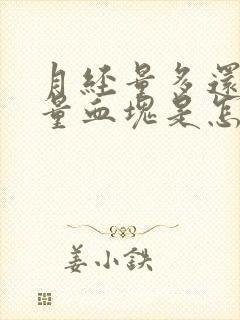 月经量多還
量血塊是怎
姜小鉄